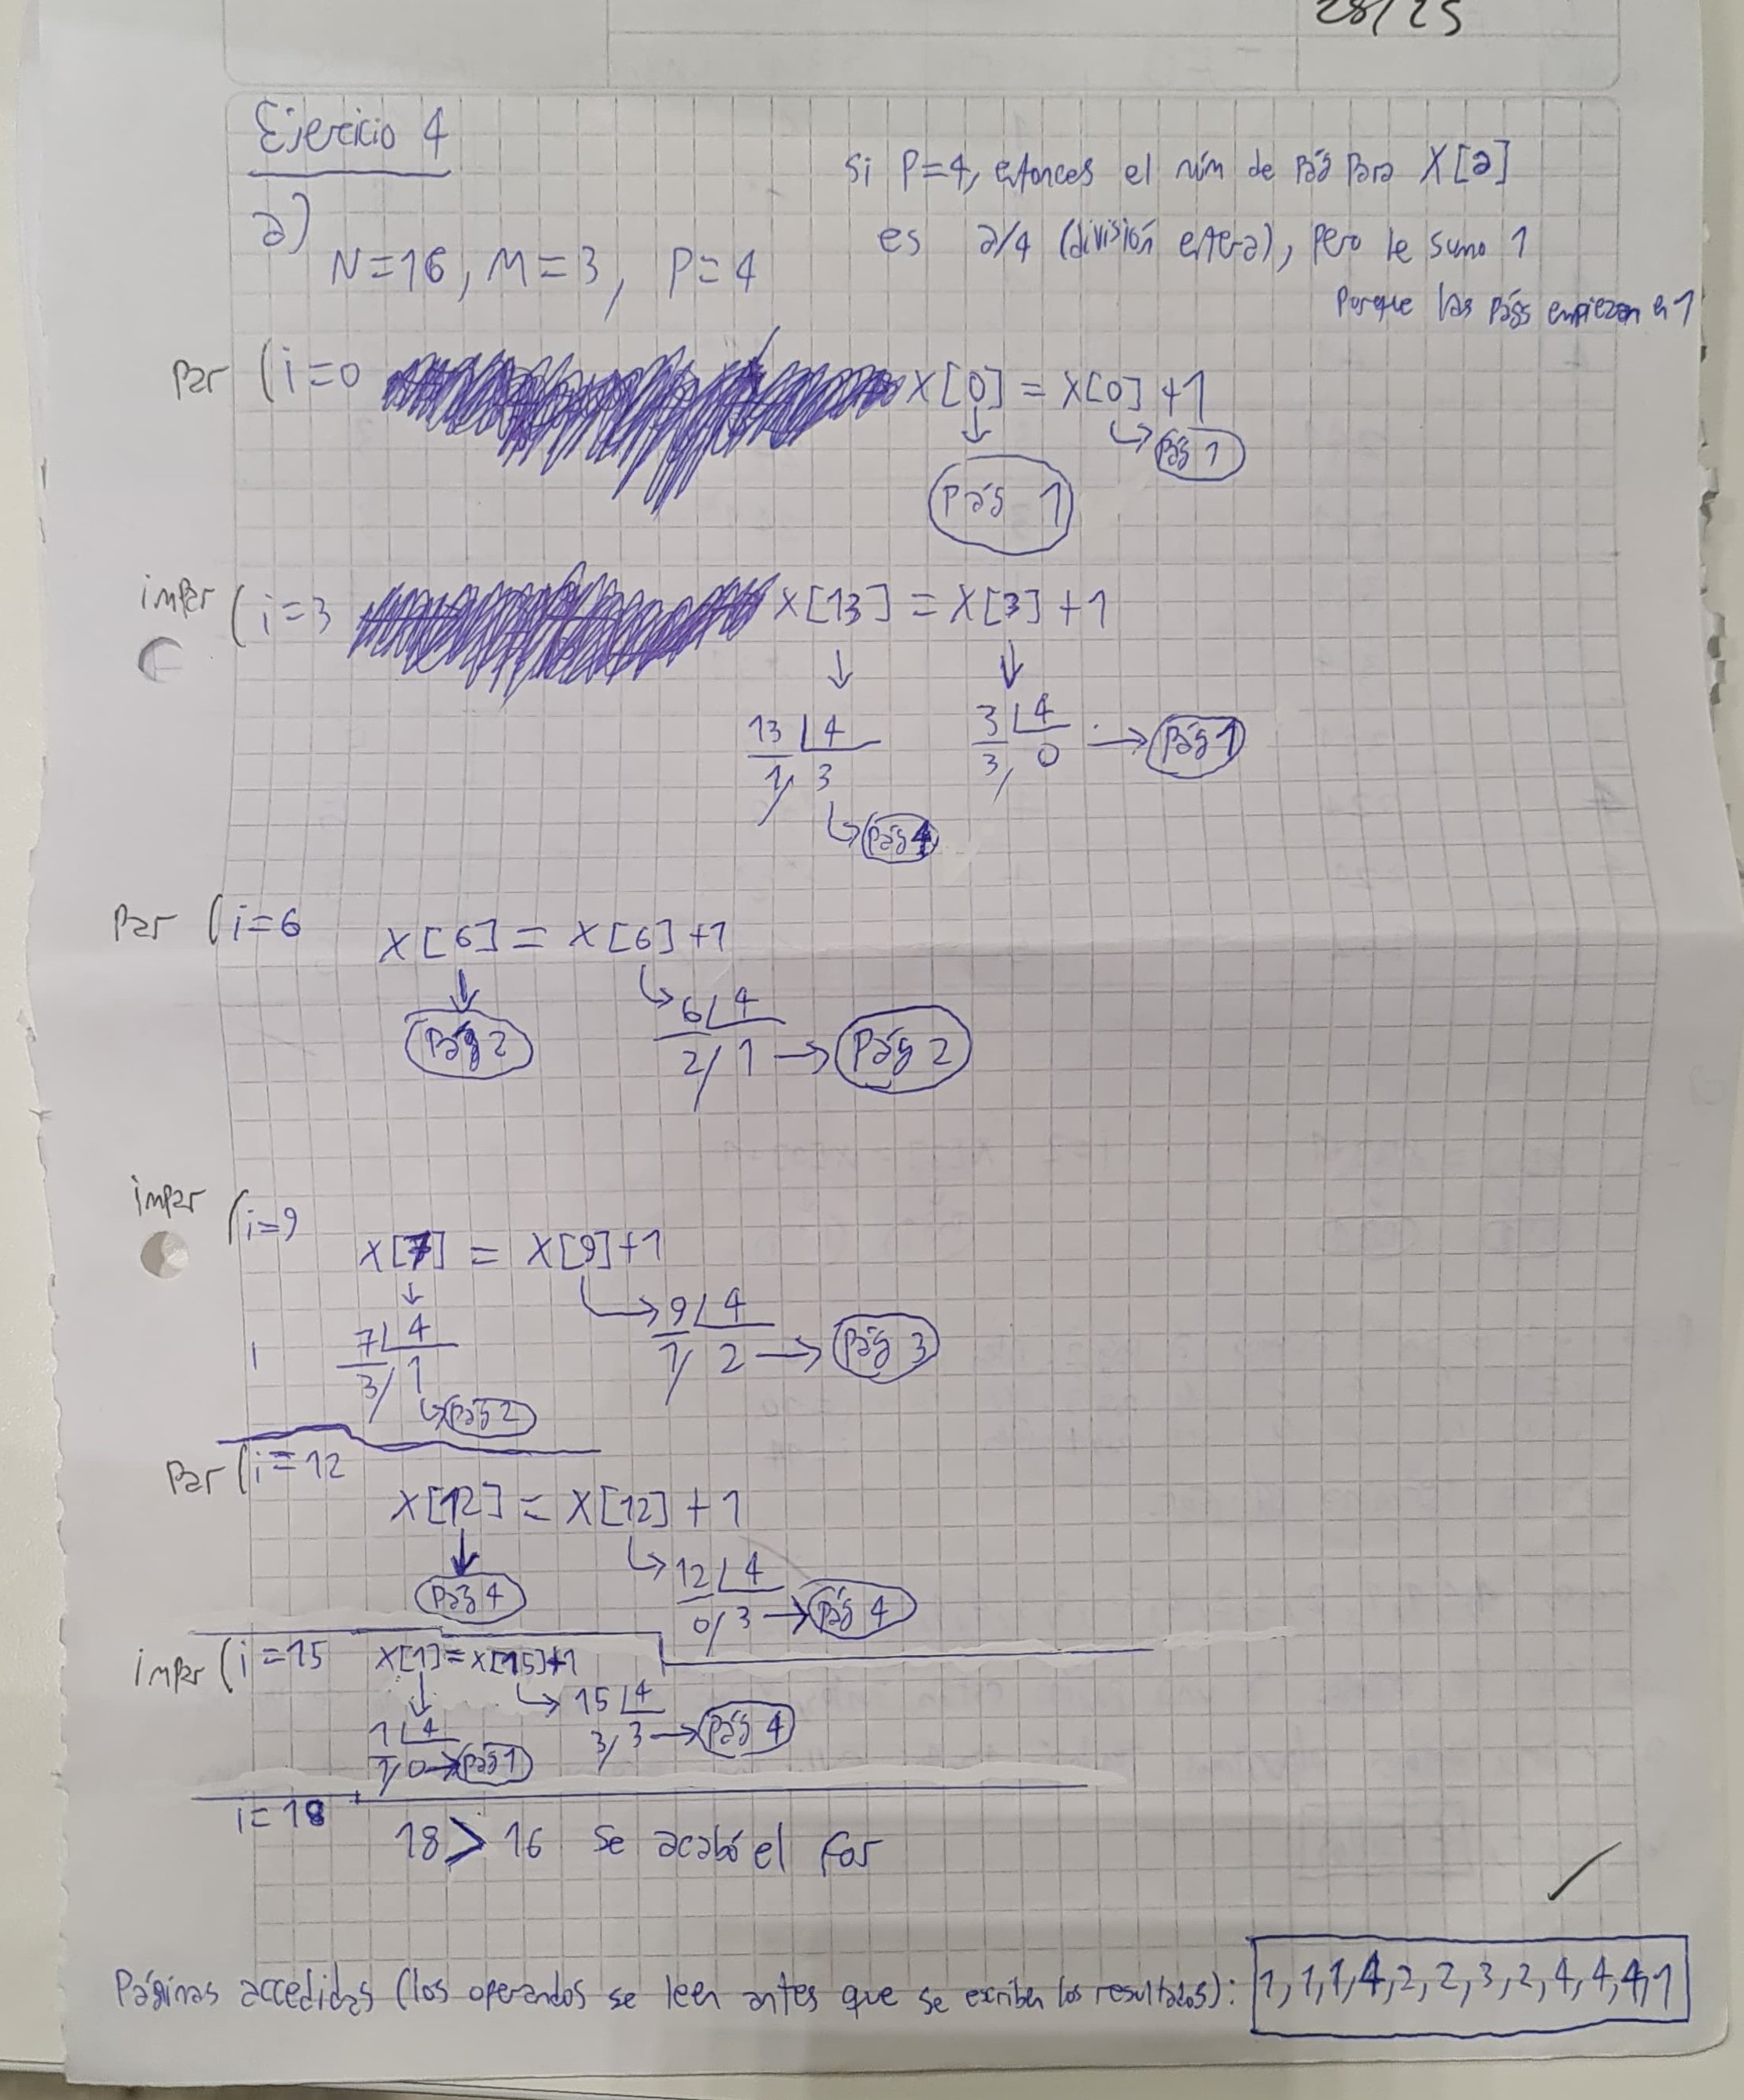 28/25
Ejercicio 4
a)
N=16, M=3, P=4
Si P=4, entonces el núm de Pág Para X[a]
es a/4 (división entera), pero le sumo 1
Porque las Págs empiezan en 1
Par (i=0 X[0] = X[0] +1
Pág 1
Pág 1
impar (i=3 X[13] = X[3] +1
13 4 3 4
1 3 3 0 Pág 1
Pág 4
Par (i=6 X[6] = X[6] +1
6 4
Pág 2 2 1 Pág 2
impar (i=9
X[7] = X[9]+1
7 4 9 4
3 1 1 2 Pág 3
Pág 2
Par (i=12
X[12] = X[12] +1
12 4
Pág 4 0 3 Pág 4
impar (i=15 X[1]=X[15]+1
1 4 15 4
1 0 Pág 1 3 3 Pág 4
i=18
18 > 16 se acabó el for
Páginas accedidas (los operandos se leen antes que se escriben los resultados): 1,1,1,4,2,2,3,2,4,4,4,1